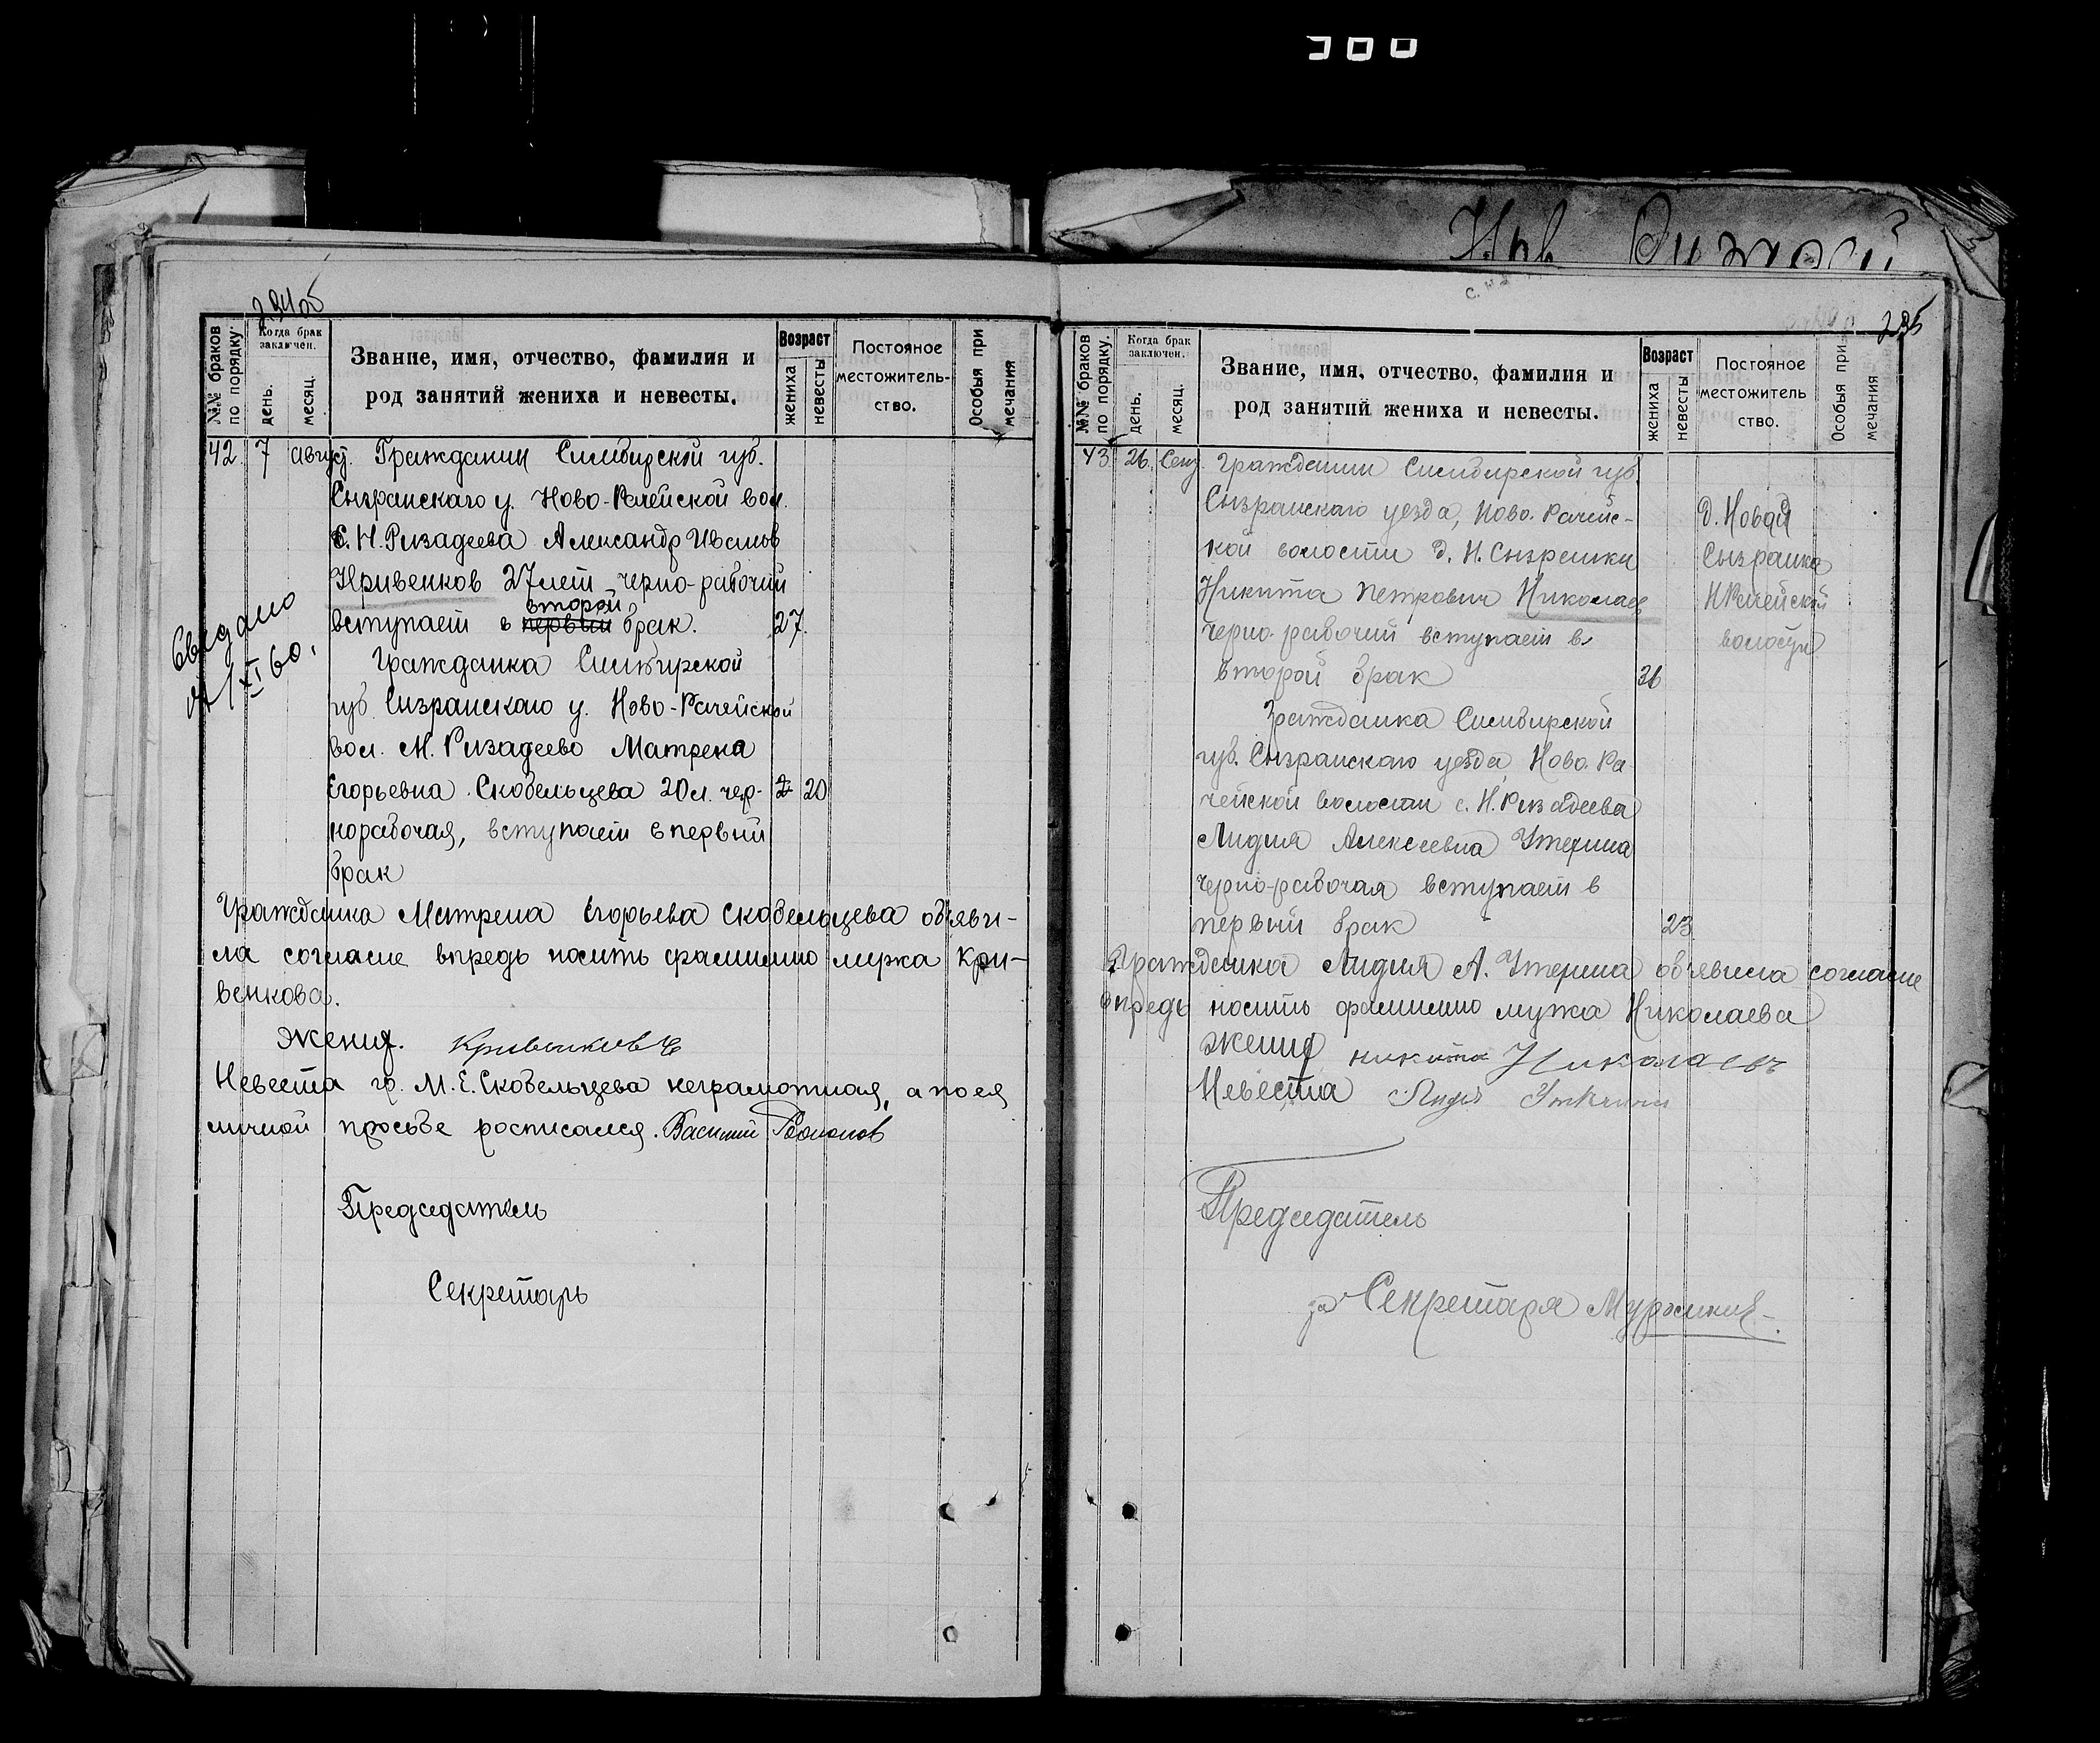 №№ браков по порядку.
Когда брак заключен.
день.
месяц.
Звание, имя, отчество, фамилия и
род занятий жениха и невесты.
Возраст
жениха
невесты
Постояное
местожитель-
ство.
Особыя при
мечания
42. 7 август. Гражданин Симбирской губ.
Сызранскаго у. Ново-Рачейской вол.
с. Н. Ризадеева Александр Иванов
Кривенков 27 лет черно-рабочий
второй
вступает в первый брак. 27.
Гражданка Симбирской
губ. Сызранскаго у. Ново-Рачейской
вол. М. Ризадеево Матрена
Егорьевна Скобельцева 20 л. чер- 2 20
норабочая, вступает в первый
брак
Гражданка Матрена Егорьева Скобельцева объяви-
ла согласие впредь носить фамилию мужа Кри-
венкова.
Жених. Кривенковъ
Невеста гр. М. Е. Скобельцева неграмотная, а по ея
личной просьбе росписался. Василий
Председатель
Секретарь
60.
300
235
№№ браков по порядку.
Когда брак заключен.
день.
месяц.
Звание, имя, отчество, фамилия и
род занятий жениха и невесты.
Возраст
жениха
невесты
Постояное
местожитель
ство.
Особыя при
мечания
43 26. Сент. Гражданин Симбирской губ.
Сызранскаго уезда, Ново-Рачейс- д. Новая
кой волости д. Н. Сызранки Сызранка
Никита Петрович Николаев Н Рачейской
черно-рабочий вступает в волости
второй брак 26
Гражданка Симбирской
губ. Сызранскаго уезда Ново-Ра
чейской волости с. Н. Ризадеева
Лидия Алексеевна Утерина
черно-рабочая вступает в
первый брак 23.
Гражданка Лидия А. Утерина объявила согласие
впредь носить фамилию мужа Николаева
Жених никита Николаевъ
Невеста
Председатель
за Секретаря